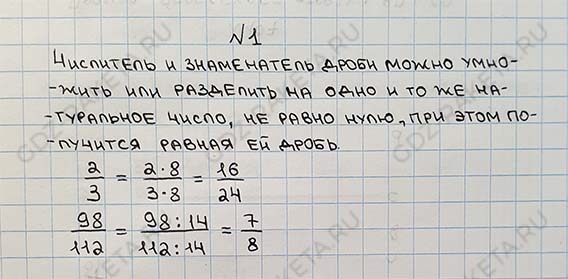 №1
Числитель и знаменатель дроби можно умно-
-жить или разделить на одно и то же на-
-туральное число, не равно нулю, при этом по-
-лучится равная ей дробь.
2/3 = 2·8/3·8 = 16/24
98/112 = 98:14/112:14 = 7/8
GDZ-RAKETA.RU